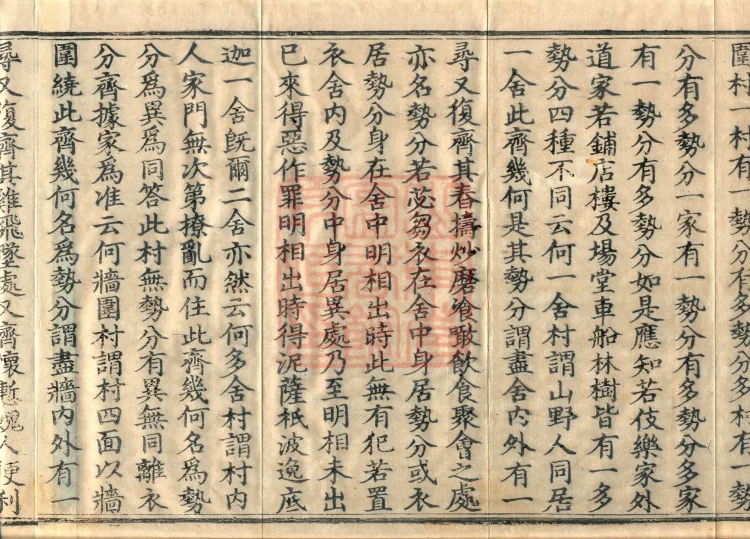 圍村一村有一勢分有多勢分多村有一勢
分有多勢分一家有一勢分有多勢分多家
有一勢分有多勢分如是應知若伎樂家外
道家若鋪店樓及場堂車船林樹皆有一多
勢分四種不同云何一舍村謂山野人同居
一舍此齊幾何是其勢分謂盡舍內外有一
尋又復齊其舂擣炒磨飡噉飲食聚會之處
亦名勢分若苾芻衣在舍中身居勢分或衣
居勢分身在舍中明相出時此無有犯若置
衣舍內及勢分中身居異處乃至明相未出
已來得惡作罪明相出時得泥薩祇波逸底
迦一舍既爾二舍亦然云何多舍村謂村內
人家門無次第撩亂而住此齊幾何名為勢
分為異為同答此村無勢分有異無同離衣
分齊據家為准云何牆圍村謂村四面以牆
圍繞此齊幾何名為勢分謂盡牆內外有一
尋又復齊其雞飛墮處又齊懷慚愧人便利